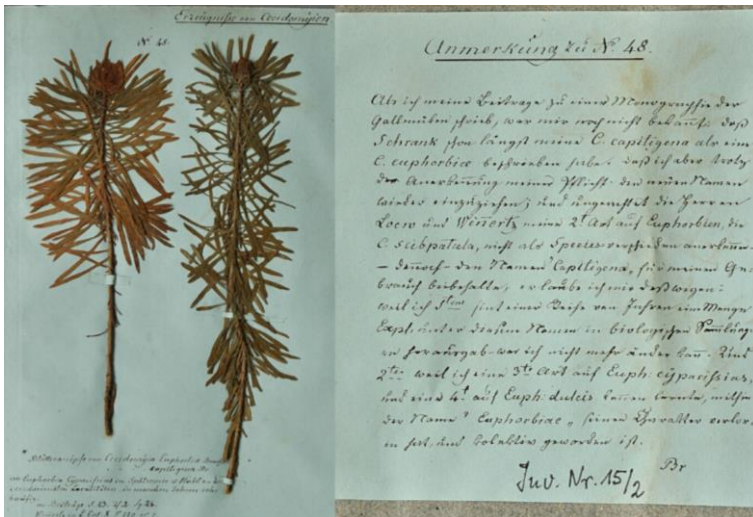 Erzeugnisse von Cecidomyien
No 48.
Blätterknöpfe von Cecidomyia Euphorbiae
capitigena Br
an Euphorbia Cyparissias in
Anmerkung zu No. 48.
Als ich meine Beitrage zu einer Monographie der
Gallmüken schrieb, war mir noch nicht bekannt daß
Schrank schon längst meine C. capitigena als eine
C. euphorbiae beschrieben habe. daß ich aber trotz
der Anerkennung meiner Pflicht den neuen Namen
wieder einzuziehen; und ungeachtet die Herren
Loew und Winertz meine 2t Art auf Euphorbien, die
C. subpatula, nicht als Species verschieden anerkennen
– dennoch den Namen Capitigena, für meinen Ge
brauch beibehalte, erlaube ich mir deßwegen:
weil ich seit einer Reihe von Jahren eine Menge
Expl. unter diesem Namen in biologischen Sammlung
en herausgab was ich nicht mehr ändern kann. Und
2tens weil ich eine 3te Art auf Euph: cyparissias,
und eine 4t auf Euph: dulcis kennen lernte, mithin
der Name "Euphorbiae" seinen Charakter verlor
en hat, und kolektiv geworden ist.
Br
Inv. Nr. 15/2